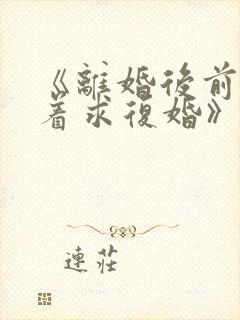 《離婚後前
着求復婚》
連莊